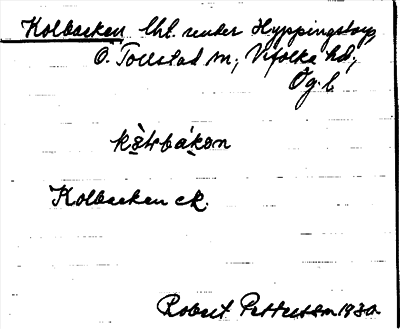 Kolbacken lht. under Hyppingstorp,
Ö. Tollstad sn; Vifolka hd;
Ög. l.
Kolbacken ek.
Robert Pettersson 1930